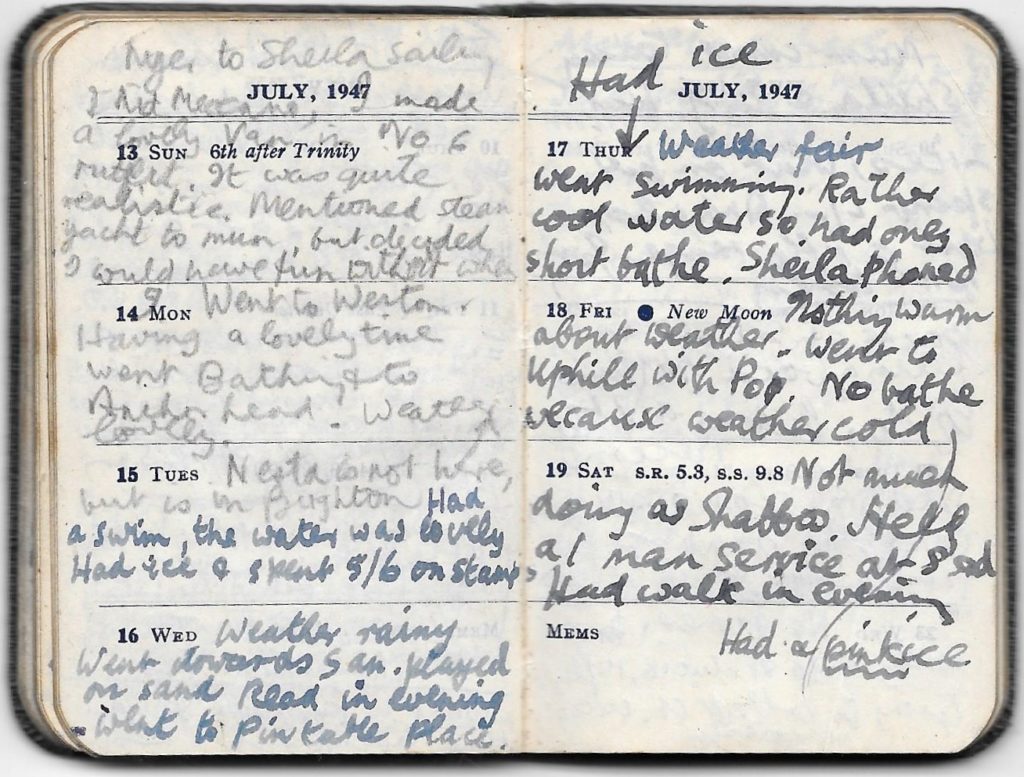 to Sheila sailing
JULY, 1947
I made
a lovely Van in No 6
13 SUN 6th after Trinity
It was quite
realistic. Mentioned steam
yacht to mum, but decided
I would have fun without
14 MON Went to Weston.
Having a lovely time
went Bathing & to
Anchor head. Weather
lovely.
15 TUES Nesta is not here,
but is in Brighton Had
a swim, the water was lovely
Had ice & spent 5/6 on stamps
16 WED Weather rainy
Went towards San. played
on sand Read in evening
went to Pintable Place.
Had ice
JULY, 1947
17 THUR Weather fair
went swimming. Rather
cool water so had only
short bathe. Sheila phoned
18 FRI New Moon Nothing warm
about weather. Went to
Uphill with Pop. No bathe
because weather cold
19 SAT S.R. 5.3, S.S. 9.8 Not much
doing as Shabbos. Held
a 1 man service at
Had walk in evening
MEMS
Had a pink ice